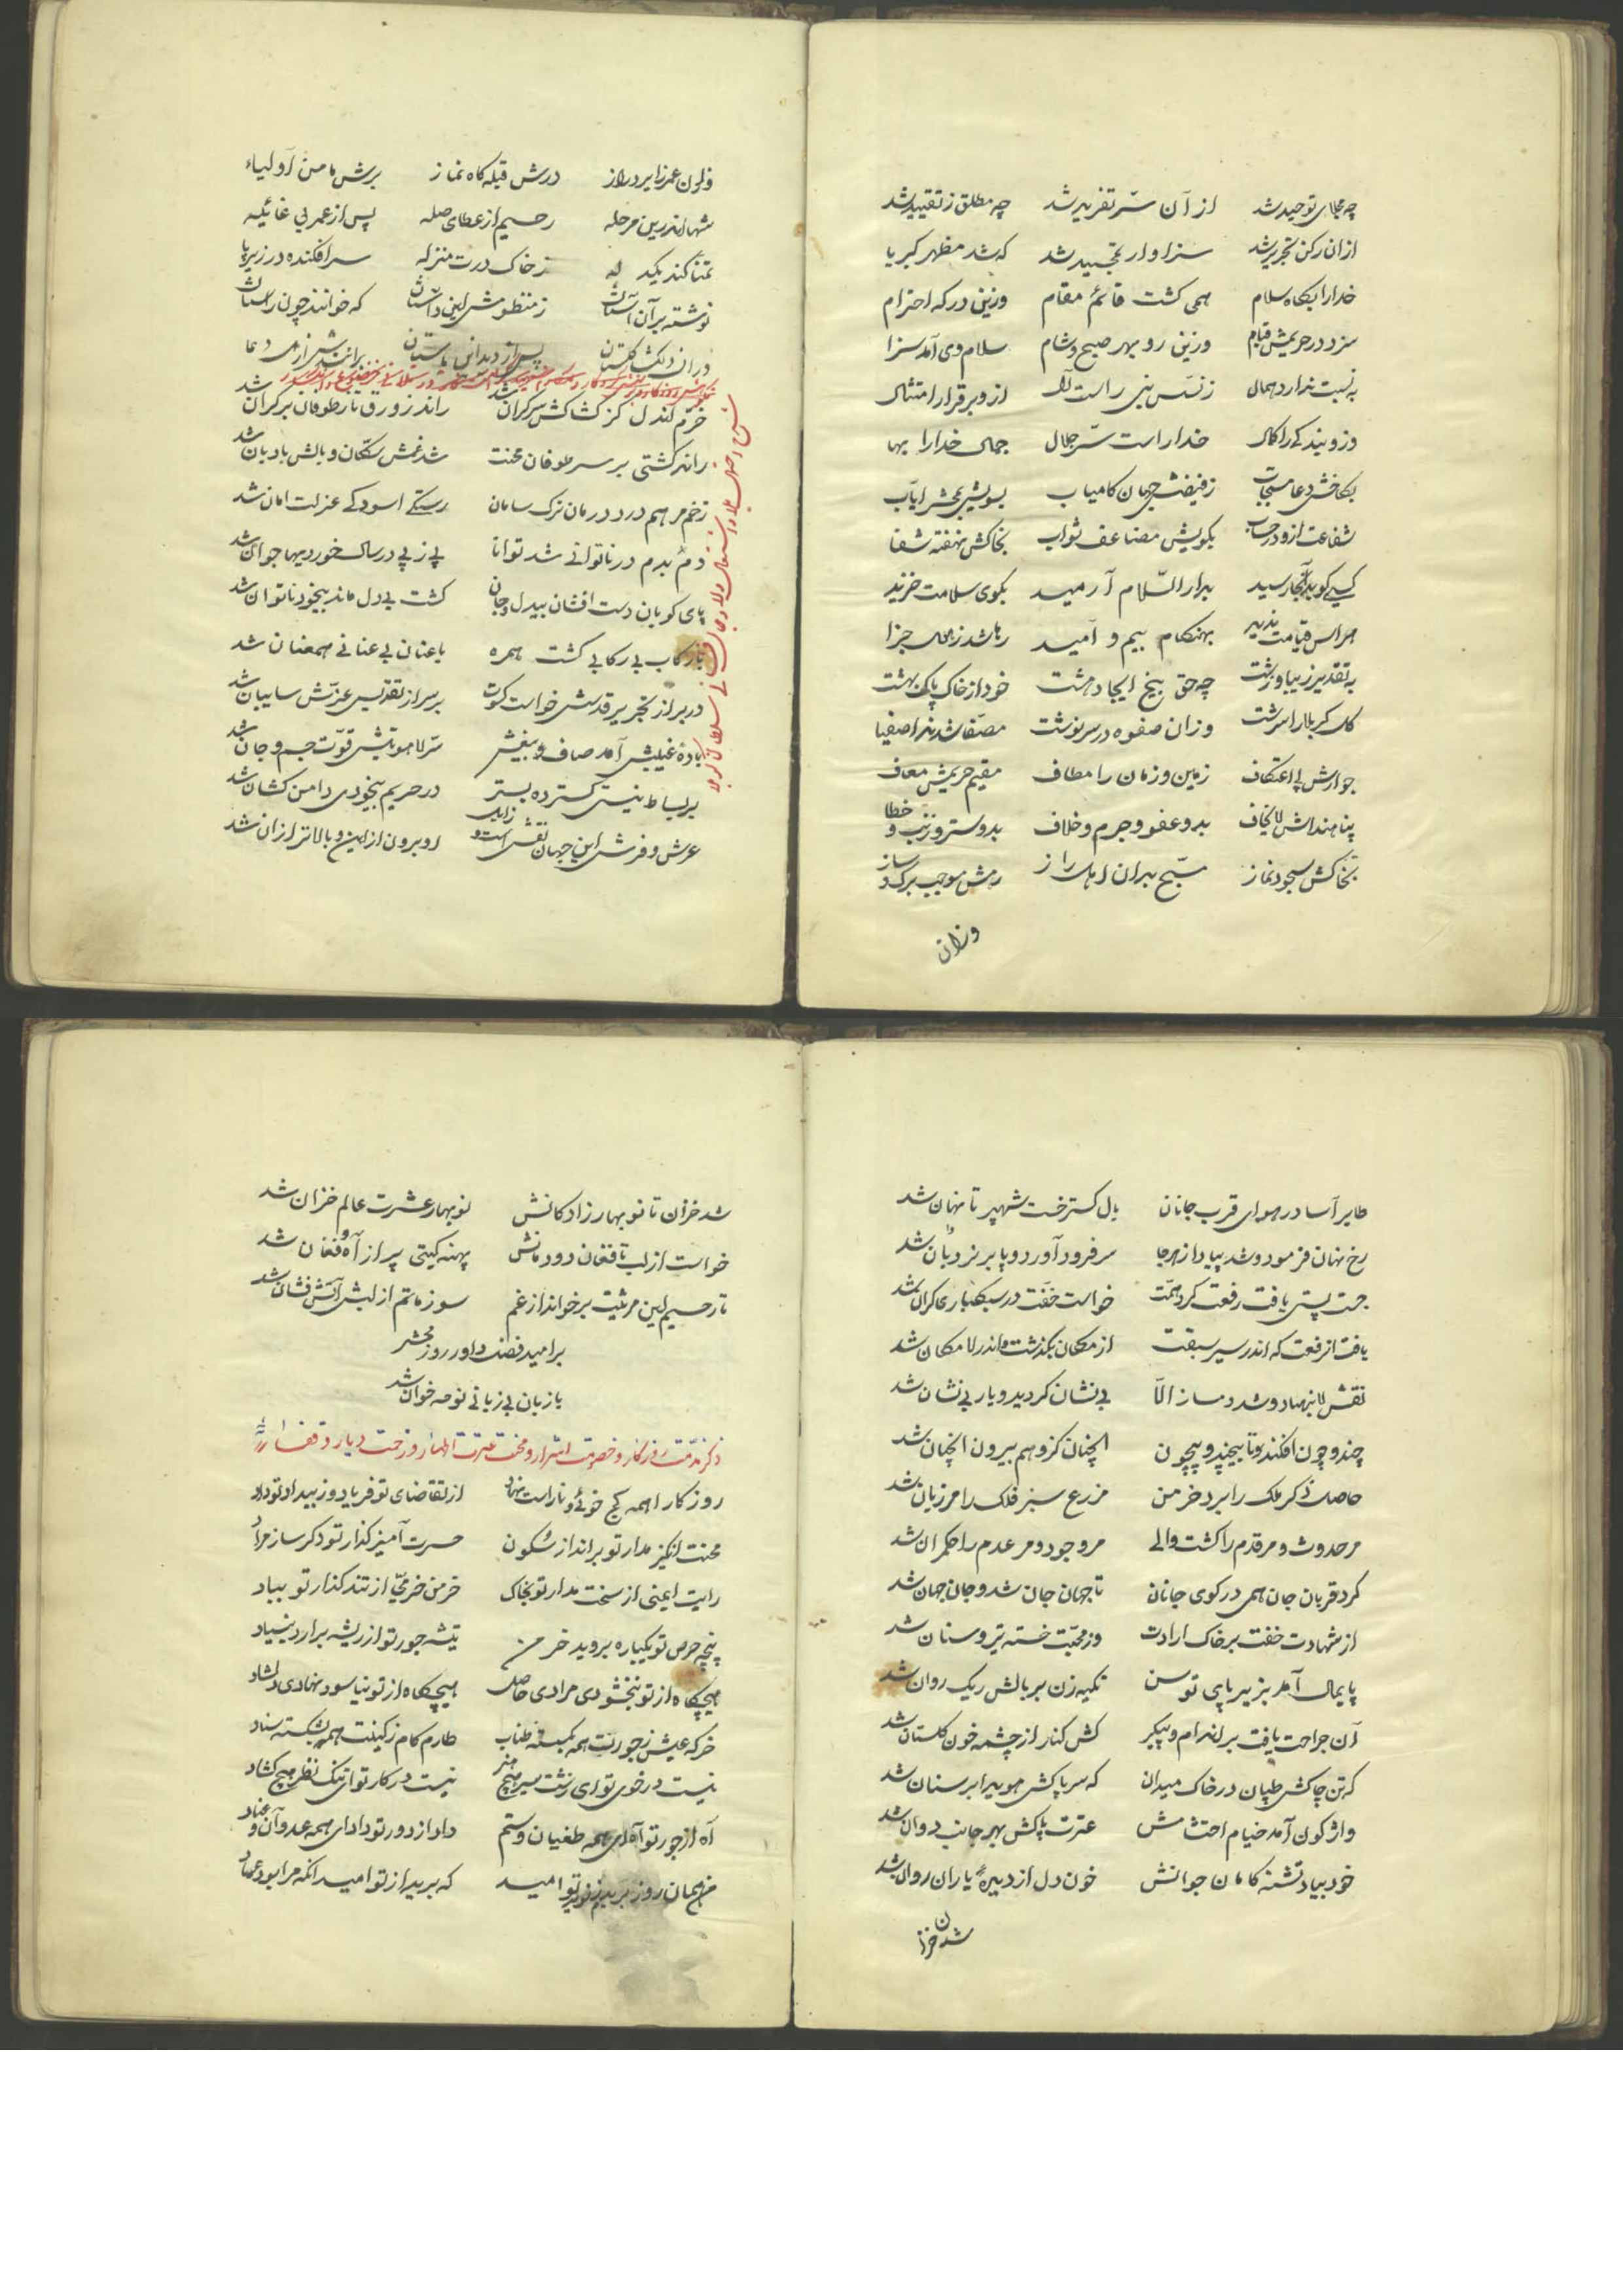 چه مجلای توحید شد از آن سرّ تفرید شد چه مطلق ز تقیید شد
از ان رکن تجرید شد سزاوار تمجید شد که شد مظهر کبریا
خدا را بگاه سلام همی گشت قائم مقام وزین درگه احترام
سزد در حریمش قیام وزین رو بهر صبح و شام سلام وی آمد سزا
به نسبت ندارد همال ز نسل نبی راست آل ازو برقرار امتثال
وزو بندگی را کمال خدا راست سرّ جلال جمال خدا را بها
بخاکش دعا مستجاب ز فیضش جهان کامیاب بسویش بمحشر ایاب
شفاعت ازو در حساب بکویش مضاعف ثواب بخاکش نهفته شفا
کسی کو بدانجا رسید بدار السّلام آرمید بکوی سلامت خزید
هراس قیامت ندید بهنگام بیم و امید رها شد ز هول جزا
به تقدیر زیبا و زشت چه حق بیخ ایجاد هشت خود از خاک پاک بهشت
گل کربلا را سرشت وزان صفوه در سرنوشت مصفّا شدند اصفیا
جوارش پی اعتکاف زمین و زمان را مطاف مقیم حریمش معاف
پناهنداش لاتخاف بدو عفو و جرم و خلاف بدو ستر و ذنب و خطا
بخاکش سجود نماز مسبّح بدان اهل راز رهش موجب برگ و ساز
وزان
وزان عمر زایر دراز درش قبله گاه نماز برش مامن اولیاء
شها اندرین مرحله رحیم از عطای صله پس از عمر بی غائیله
تمنا کند یکدله ز خاک درت منزله سر افکنده در زیر پا
نوشته بر آن آستان ز منظومش این داستان که خوانند چون راستان
در ان دلگشا گلستان پس از دیدنش باستان برانند ازمن دعا
خرّم آندل کز کشاکش بر کران شد راند زورق تا ز طوفان بر کران شد
راند کشتی بر سر طوفان محنت شد غمش سکّان و بالش بادبان شد
زخم مرهم درد درمان ترک سامان رستگی اسودگی عزلت امان شد
دم بدم در ناتوانی شد توانا پی ز پی در سال خوردیها جوان شد
پای کوبان دست افشان بیدل و جان گشت بی دل ماند بیخود ناتوان شد
با رکاب بی رکابی گشت همره با عنان بی عنانی همعنان شد
در بر از تجرید قدسش خواست کسوت بر سر از تقدیس عزّش سایبان شد
بادهٔ غیبیش آمد صاف و بیغش سرّ لاهوتیش قوّت جسم و جان شد
بر بساط نیستی گسترده بستر در حریم بیخودی دامن کشان شد
عرش و فرش این جهان نقشی است زایل و او برون از این و بالاتر ازان شد
طایر آسا در هوای قرب جانان بال گسترخت شهپر تا نهان شد
رخ نهان فرمود و شد پیدا ز هر جا سر فرود آورد و پا بر نردبان شد
جست پستی یافت رفعت کرد همّت خواست خفّت در سبکباری گران شد
یافت از رفعت که اندر سیر سبقت از مکان بگذشت و اندر لامکان شد
نقش لا بنهاد و شد دمساز الّا بی نشان گردید و یار بی نشان شد
چند و چون افکند و تا بیچند و بیچون انچنان کز وهم بیرون انچنان شد
حاصل ذکر ملک را برد خرمن مزرع سبز فلک را مرزبان شد
مر حدوث و مر قدم را گشت والی مر وجود و مر عدم را حکمران شد
کرد قربان جان همی در کوی جانان تا جهان جان شد و جان جهان شد
از شهادت خفت بر خاک ارادت وز محبّت خسته تیر و سنان شد
پایمال آمد بزیر پای توسن تکیه زن بر بالش ریک روان شد
آن جراحت یافت بر اندام و پیکر کش کنار از چشمه خون گلستان شد
که تن چاکش طپان در خاک میدان که سر پاکش هویدا بر سنان شد
واژگون آمد خیام احتشامش عترت پاکش بهر جانب دوان شد
خود بیاد تشنه کامان جوانش خون دل از دیده یاران روان شد
شد خزان
شد خزان تا نوبهار زادگانش نوبهار عشرت عالم خزان شد
خواست از لب تا فغان دودمانش پهنه گیتی پر از آه و فغان شد
تا رحیم این مرثیت برخواند از غم سوز ماتم از لبش آتش فشان شد
بر امید فضل داور روز محشر
با زبان بی زبانی نوحه خوان شد
ذکر مذمّت روزگار و خصومت اشرار و محنت عترت اطهار و زحمت دیار
روزگارا همه کج خوئی و ناراست نهاد از تقاضای تو فریاد و ز بیداد تو داد
محنت انگیز مدار تو براندازسکون حسرت آمیز گذار تو دگر ساز مراد
رایت ایمنی از سخت مدار تو بخاک خرمن خرمّی از تند گذار تو بباد
پنجه حرص تو یکباره بروید خرمن تیشه جور تو از ریشه برارد بنیاد
هیچگاه از تو نبخشودی مرادی حاصل هیچگاه از تو نیاسود نهادی دلشاد
خرگه عیش ز جورت همه بگسسته طناب طارم کام ز کینت همه بشکسته ستاد
نیست در خوی تو ای زشت سیر هیچ هنر نیست در کار تو ای تنگ نظر هیچ گشاد
آه از جور تو آه ای همه طغیان و ستم داد از دور تو داد ای همه عدوان و عناد
من همان روز بریدم ز تو امید که برید از تو امید انکه مرا بود عماد